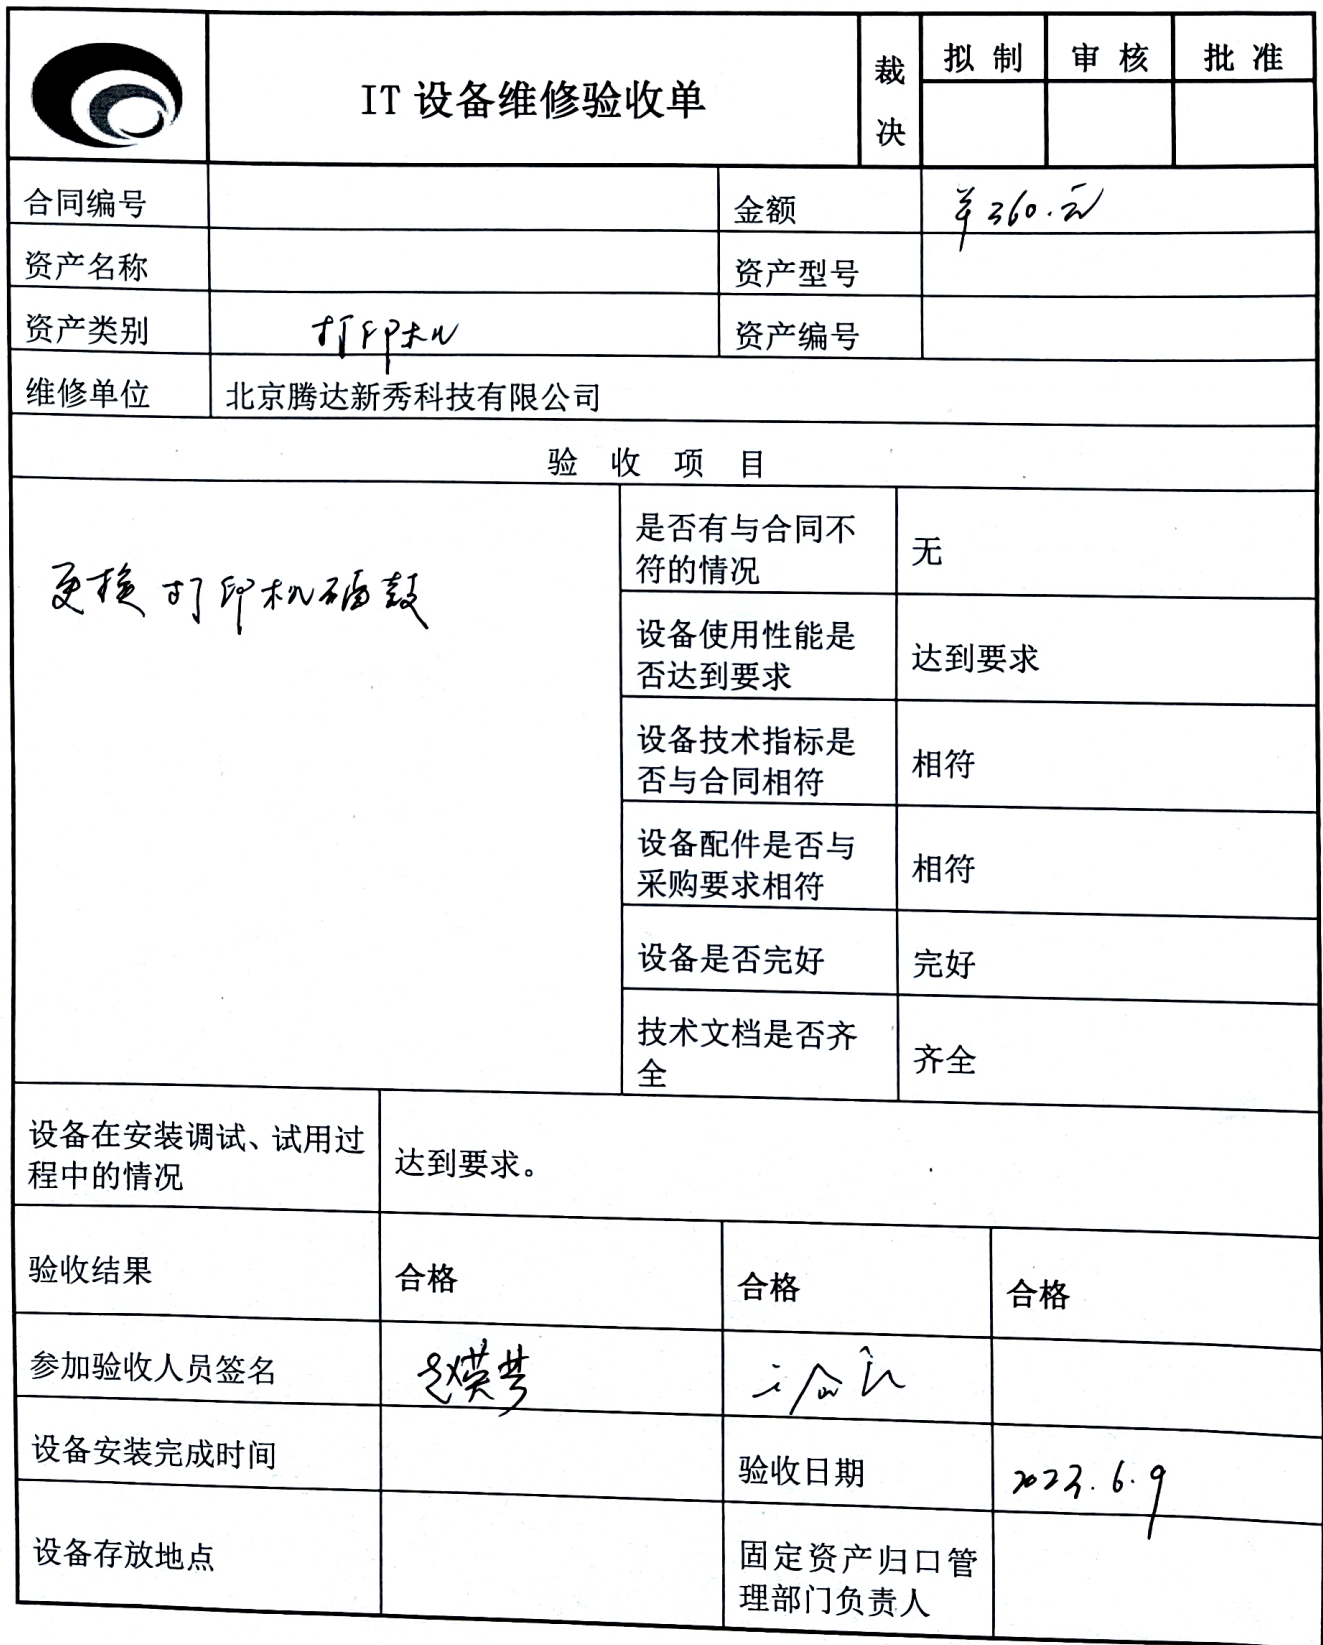 IT设备维修验收单
裁决
拟制
审核
批准
合同编号
金额
￥360.元
资产名称
资产型号
资产类别
打印机
资产编号
维修单位
北京腾达新秀科技有限公司
验收项目
更换打印机硒鼓
是否有与合同不
符的情况
无
设备使用性能是
否达到要求
达到要求
设备技术指标是
否与合同相符
相符
设备配件是否与
采购要求相符
相符
设备是否完好
完好
技术文档是否齐
全
齐全
设备在安装调试、试用过
程中的情况
达到要求。
验收结果
合格
合格
合格
参加验收人员签名
设备安装完成时间
验收日期
2023.6.9
设备存放地点
固定资产归口管
理部门负责人